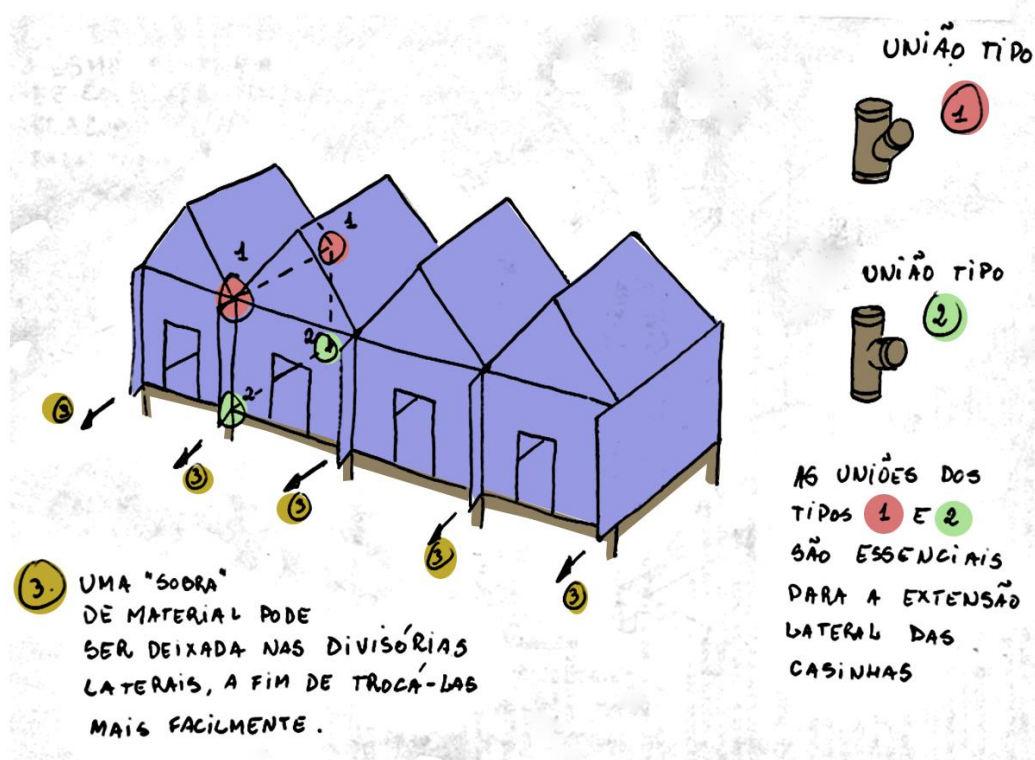 UNIÃO TIPO
1
UNIÃO TIPO
2
1
1
2
2
3
3
3
3
3
AS UNIÕES DOS
TIPOS 1 E 2
SÃO ESSENCIAIS
PARA A EXTENSÃO
LATERAL DAS
CASINHAS
3. UMA "SOBRA"
DE MATERIAL PODE
SER DEIXADA NAS DIVISÓRIAS
LATERAIS, A FIM DE TROCÁ-LAS
MAIS FACILMENTE.